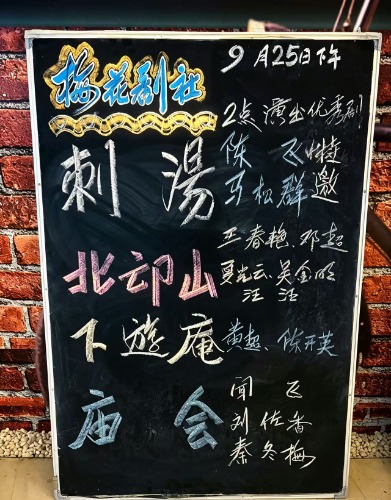 9月25日下午
梅花剧社
2点 演出优秀剧
刺 湯
陈 飞 特邀
马松群
王春艳、邓超
北邙山
夏光云、吴金明
汪 洁
下遊庵
黄超、陈开英
庙 会
闻 飞
刘佐香
秦冬梅